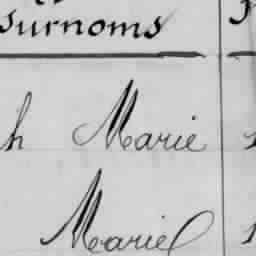 surnoms
h Marie
Marie